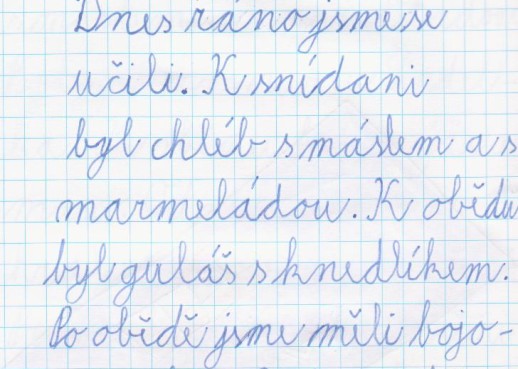 Dnes ráno jsme se
učili. K snídani
byl chléb s máslem a s
marmeládou. K obědu
byl guláš s knedlíkem.
Po obědě jsme měli bojo-